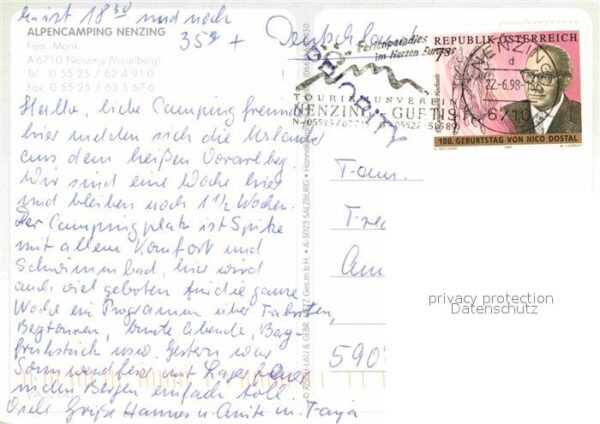 ist 18 30 und noch
35° + Deutschland
ALPENCAMPING NENZING
Fam. Morik
A-6710 Nenzing (Vorarlberg)
Tel. 0 55 25 / 62 4 91-0
Fax 0 55 25 / 63 5 67 6
Hallo, liebe Campingfreunde
hier melden sich die Urlauber
aus dem heißen Vorarlberg
Wir sind eine Woche hier
und bleiben noch 1 1/2 Wochen.
Der Campingplatz ist Spitze
mit allem Komfort und
Schwimmbad, hier wird
auch viel geboten für die ganze
Woche ein Programm über Fahrten,
Bergtouren, bunte Abende, Berg-
frühstück usw. Gestern war
Sonnwendfeuer mit
in den Bergen einfach toll.
Viele Grüße Hannes u. Anita m. Tanja
A-5023 SALZBURG
Ferienparadies
im Herzen Europas
PRIORITY
TOURISMUSVEREIN
NENZING GURTIS
REPUBLIK ÖSTERREICH
7S
NENZING
d
22.-6.98-
6710
100. GEBURTSTAG VON NICO DOSTAL
Fam.
590
privacy protection
Datenschutz